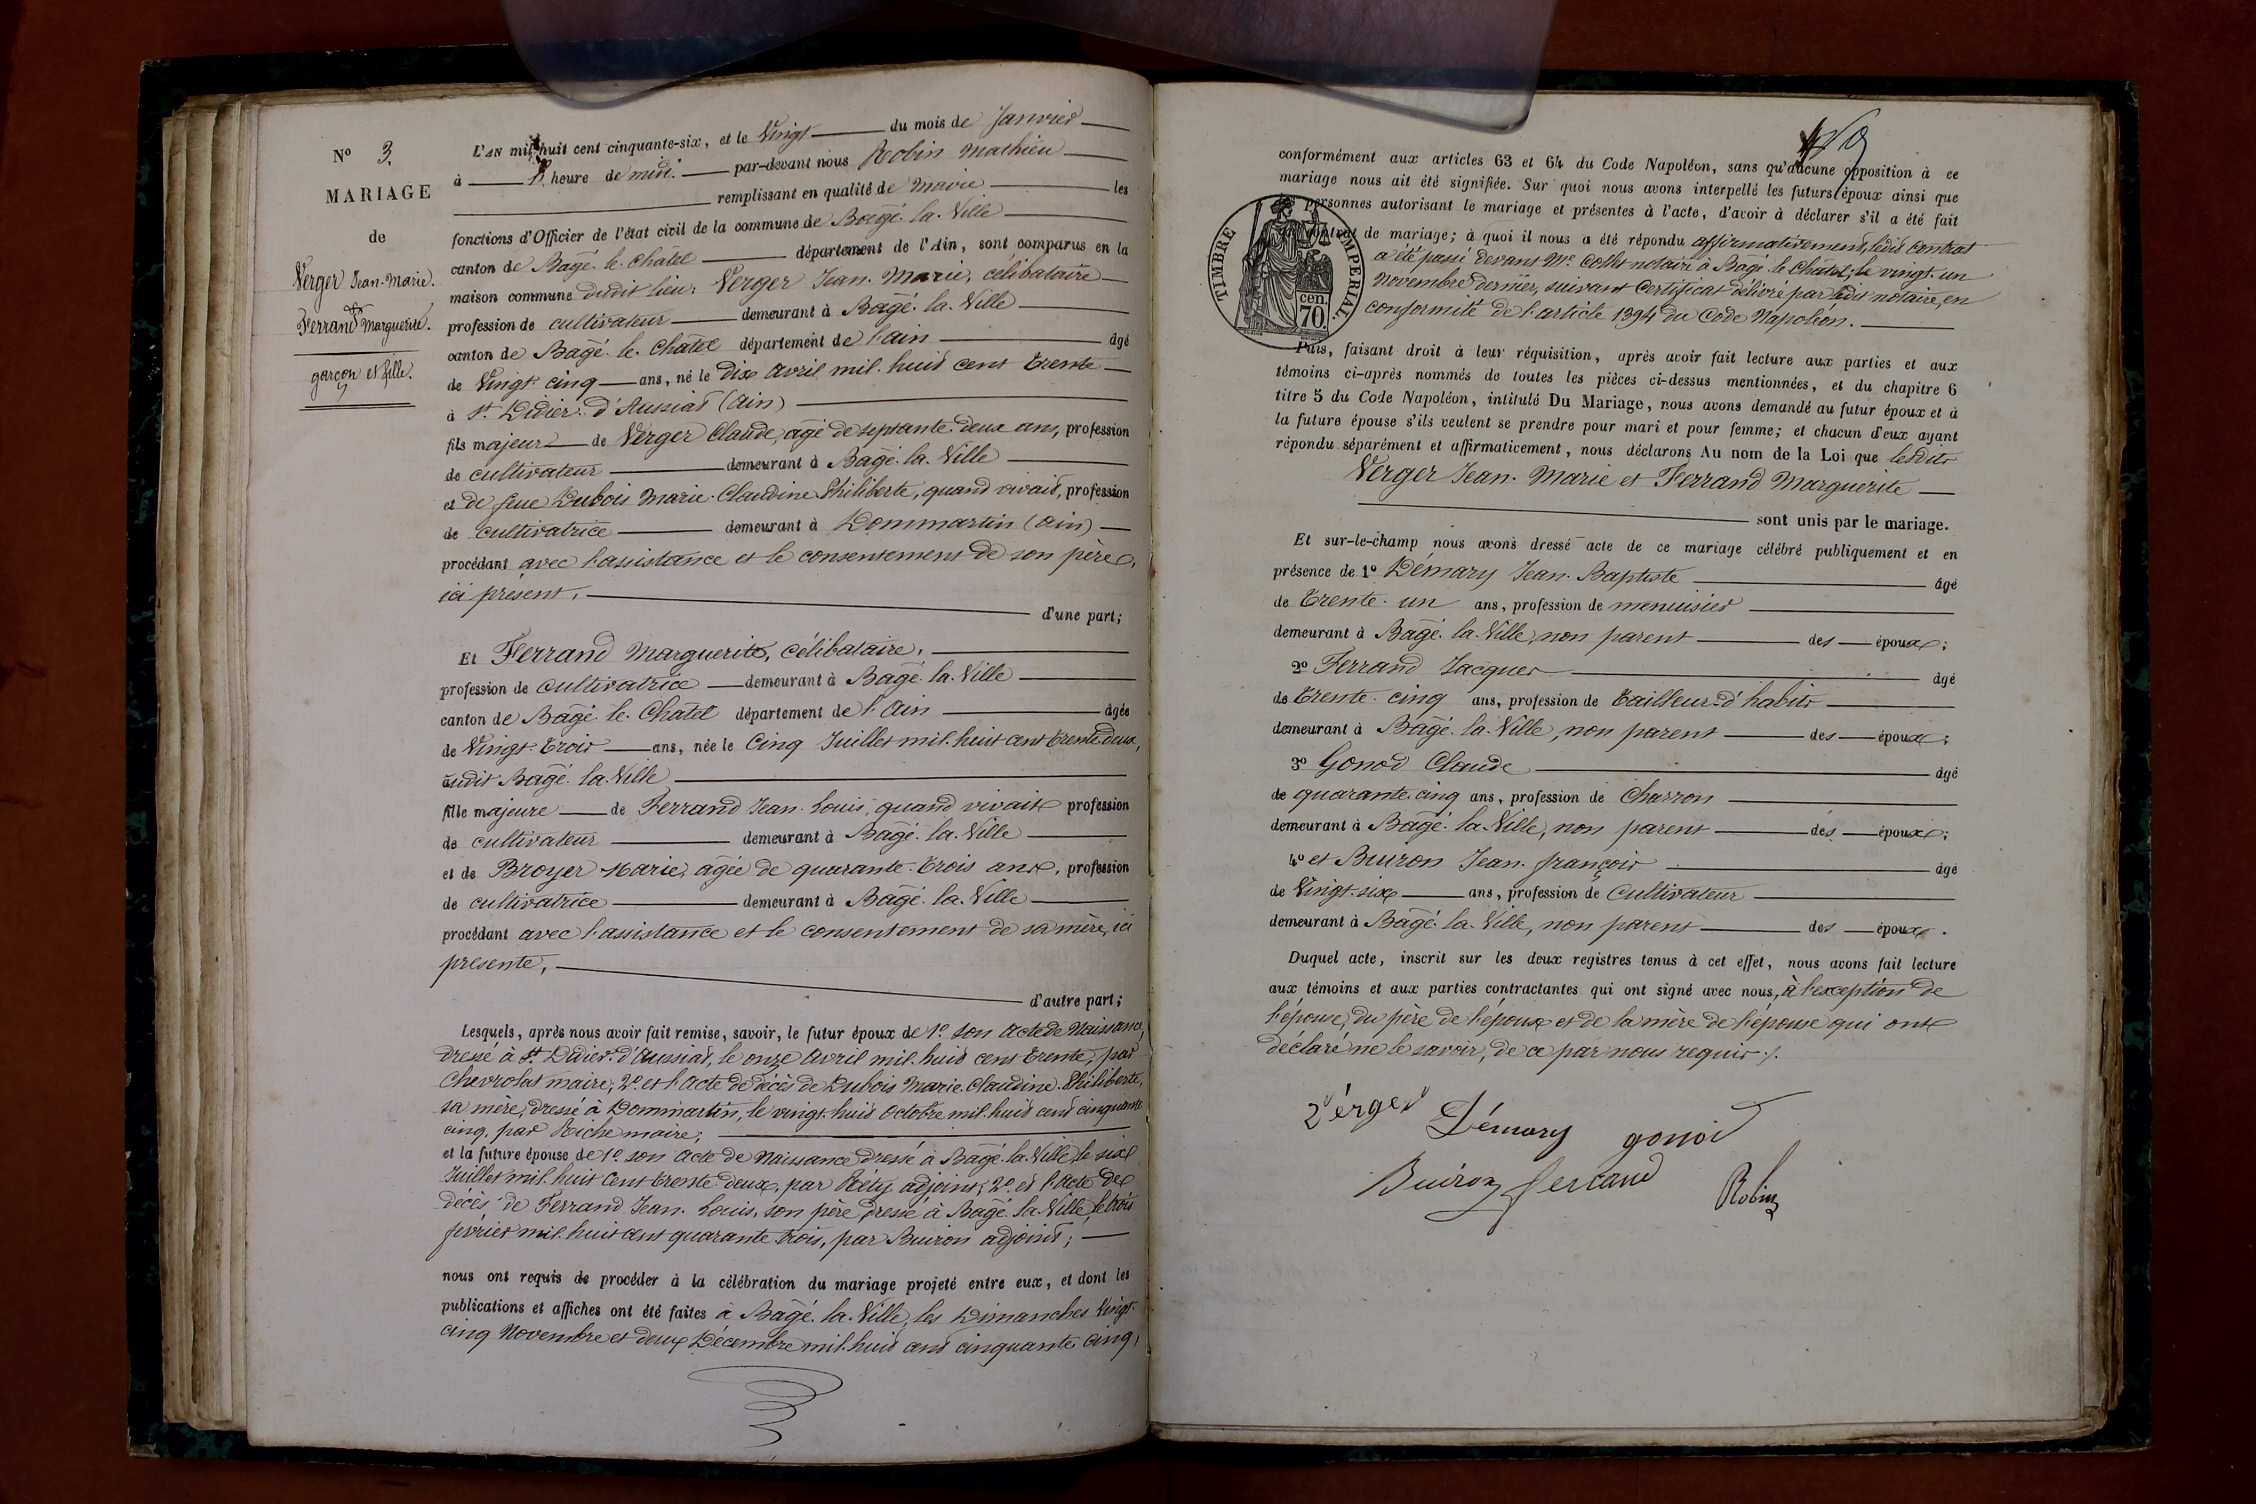 N° 3.
MARIAGE
de
Verger Jean-Marie.
et
Ferrand Marguerite.
garçon et fille.
L'AN mil huit cent cinquante-six, et le Vingt du mois de Janvier
à heure de midi. par-devant nous Robin Mathieu
remplissant en qualité de Maire les
fonctions d'Officier de l'état civil de la commune de Bâgé-la-Ville
canton de Bâgé-le-Châtel département de l'Ain, sont comparus en la
maison commune dudit lieu: Verger Jean-Marie, célibataire
profession de cultivateur demeurant à Bâgé-la-Ville
canton de Bâgé-le-Châtel département de l'ain âgé
de Vingt-cinq ans, né le dix avril mil-huit cent trente
à St Didier-d'Aussiat (Ain)
fils majeur de Verger Claude, âgé de septante-deux ans, profession
de cultivateur demeurant à Bâgé-la-Ville
et de feue Dubois Marie-Claudine Philiberte, quand vivait, profession
de cultivatrice demeurant à Dommartin (ain)
procédant avec l'assistance et le consentement de son père,
ici présent, d'une part;
Et Ferrand Marguerite, célibataire,
profession de cultivatrice demeurant à Bâgé-la-Ville
canton de Bâgé-le-Châtel département de l'Ain âgée
de Vingt-trois ans, née le Cinq Juillet mil-huit cent trente deux,
audit Bâgé-la-Ville
fille majeure de Ferrand Jean-Louis, quand vivait profession
de cultivateur demeurant à Bâgé-la-Ville
et de Broyer Marie, âgée de quarante-trois ans, profession
de cultivatrice demeurant à Bâgé-la-Ville
procédant avec l'assistance et le consentement de sa mère, ici
présente, d'autre part;
Lesquels, après nous avoir fait remise, savoir, le futur époux de 1° son acte de Naissance,
dressé à St Didier-d'Aussiat, le onze Avril mil-huit cent trente, par
Chevrolat maire; 2° et l'acte de décès de Dubois Marie-Claudine-Philiberte,
sa mère, dressé à Dommartin, le vingt-huit octobre mil-huit cent cinquante
cinq, par Riche maire;
et la future épouse de 1° son acte de Naissance dressé à Bâgé-la-Ville, le six
Juillet mil-huit cent trente-deux, par Réty adjoint; 2° et l'acte de
décès de Ferrand Jean-Louis, son père, dressé à Bâgé-la-Ville, le trois
février mil-huit cent quarante-trois, par Buiron adjoint;
nous ont requis de procéder à la célébration du mariage projeté entre eux, et dont les
publications et affiches ont été faites à Bâgé-la-Ville, les Dimanches Vingt-
cinq Novembre et deux Décembre mil-huit cent cinquante cinq,
conformément aux articles 63 et 64 du Code Napoléon, sans qu'aucune opposition à ce
mariage nous ait été signifiée. Sur quoi nous avons interpellé les futurs époux ainsi que
personnes autorisant le mariage et présentes à l'acte, d'avoir à déclarer s'il a été fait
contrat de mariage; à quoi il nous a été répondu affirmativement, ledit contrat
a été passé devant Me notaire à Bâgé-le-Châtel, le vingt-un
Novembre dernier, suivant certificat délivré par ledit notaire, en
conformité de l'article 1394 du Code Napoléon.
TIMBRE IMPERIAL.
70 cen.
Puis, faisant droit à leur réquisition, après avoir fait lecture aux parties et aux
témoins ci-après nommés de toutes les pièces ci-dessus mentionnées, et du chapitre 6
titre 5 du Code Napoléon, intitulé Du Mariage, nous avons demandé au futur époux et à
la future épouse s'ils veulent se prendre pour mari et pour femme; et chacun d'eux ayant
répondu séparément et affirmativement, nous déclarons Au nom de la Loi que lesdits
Verger Jean-Marie et Ferrand Marguerite
sont unis par le mariage.
Et sur-le-champ nous avons dressé acte de ce mariage célébré publiquement et en
présence de 1° Démary Jean-Baptiste âgé
de trente-un ans, profession de menuisier
demeurant à Bâgé-la-Ville, non parent des époux;
2° Ferrand Jacques âgé
de trente-cinq ans, profession de tailleur d'habits
demeurant à Bâgé-la-Ville, non parent des époux;
3° Gonod Claude âgé
de quarante-cinq ans, profession de Charron
demeurant à Bâgé-la-Ville, non parent des époux;
4° et Buiron Jean-françois âgé
de Vingt-six ans, profession de Cultivateur
demeurant à Bâgé-la-Ville, non parent des époux.
Duquel acte, inscrit sur les deux registres tenus à cet effet, nous avons fait lecture
aux témoins et aux parties contractantes qui ont signé avec nous, à l'exception de
l'épouse, du père de l'époux et de la mère de l'épouse qui ont
déclaré ne le savoir, de ce par nous requis.
Vérger Démary gonod
Buiron ferrand Robin